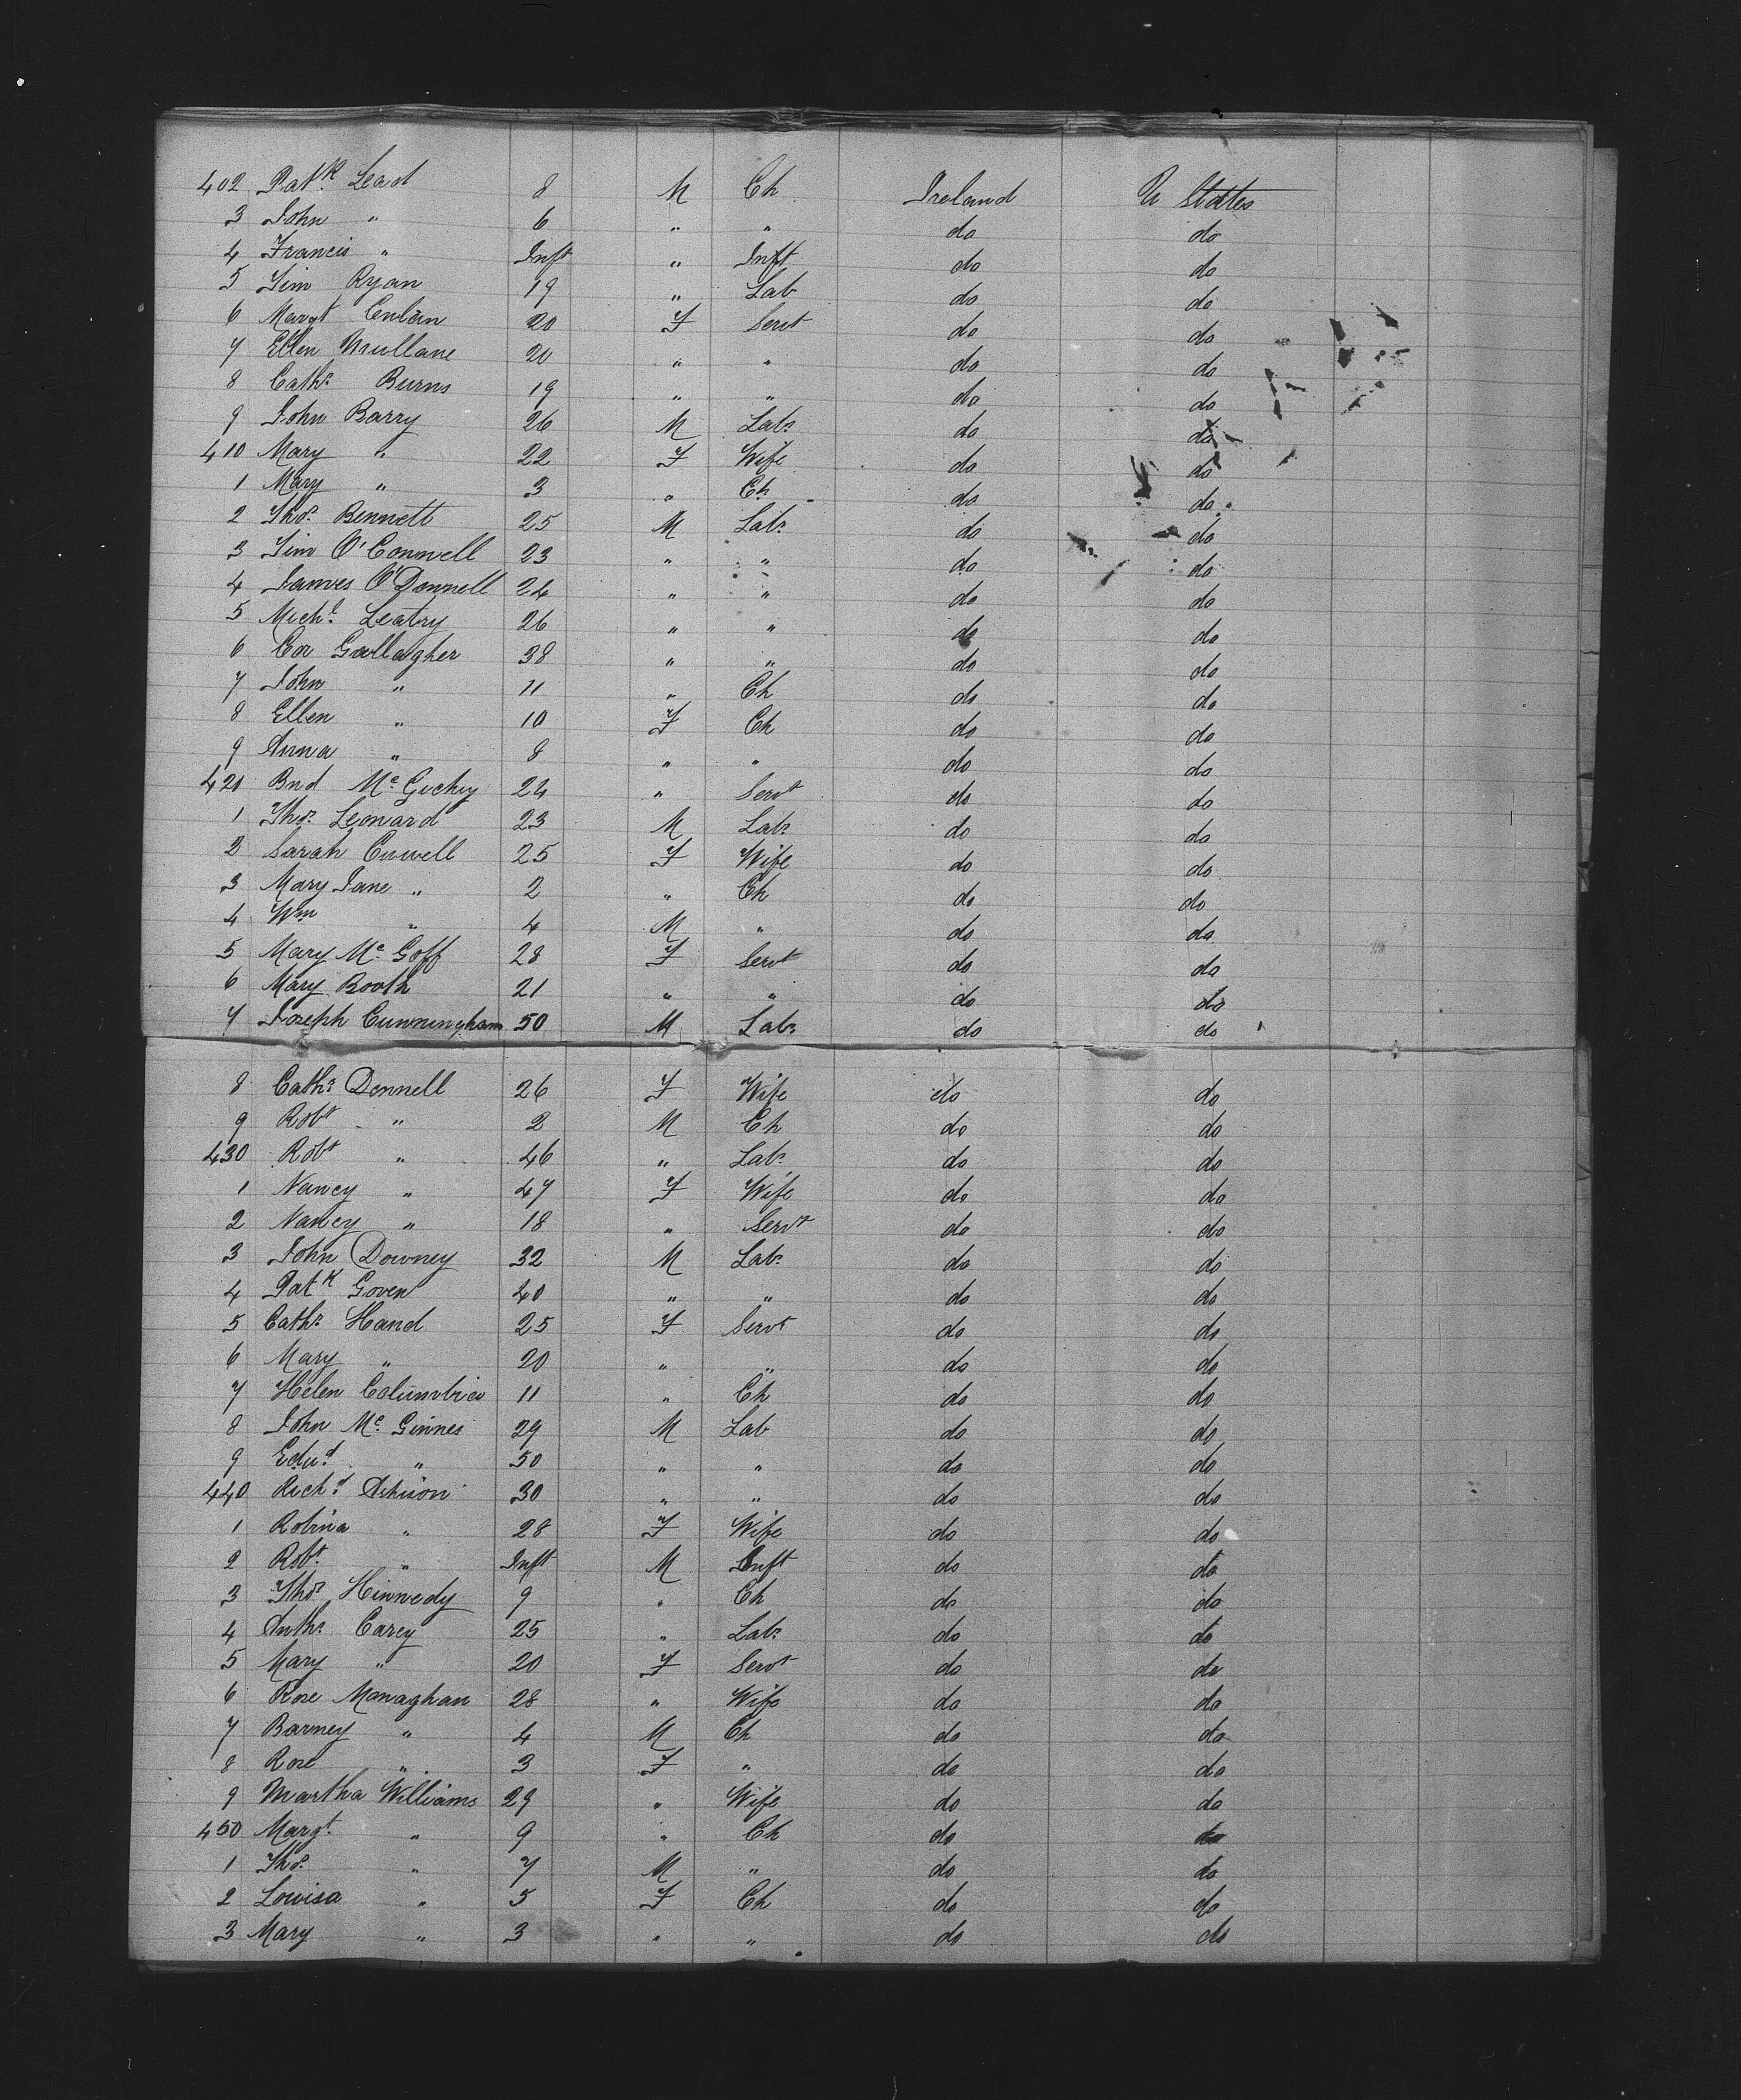 402 Patk Lead 8 M Ch Ireland U States
3 John " 6 " " do do
4 Francis " Inft " Inft do do
5 Tim Ryan 19 " Lab do do
6 Margt Conlan 20 F Servt do do
7 Ellen Mullane 20 " " do do
8 Cathe Burns 19 " " do do
9 John Barry 26 M Labr do do
410 Mary " 22 F Wife do do
1 Mary " 3 " Ch do do
2 Thos Bennett 25 M Labr do do
3 Tim O'Connell 23 " " do do
4 James O'Donnell 24 " " do do
5 Michl Leatry 26 " " do do
6 Cor Gallagher 38 " " do do
7 John " 11 " Ch do do
8 Ellen " 10 F Ch do do
9 Anna " 8 " " do do
420 Bnd Mc Guchy 24 " Servt do do
1 Thos Leonard 23 M Labr do do
2 Sarah Cuwell 25 F Wife do do
3 Mary Jane " 2 " Ch do do
4 Wm " 4 M " do do
5 Mary Mc Goff 28 F Servt do do
6 Mary Booth 21 " " do do
7 Joseph Cunningham 50 M Labr do do
8 Cathe Donnell 26 F Wife do do
9 Robt " 2 M Ch do do
430 Robt " 46 " Labr do do
1 Nancy " 47 F Wife do do
2 Nancy " 18 " Servt do do
3 John Downey 32 M Labr do do
4 Patk Goven 40 " " do do
5 Cathe Hand 25 F Servt do do
6 Mary " 20 " " do do
7 Helen Columbia 11 " Ch do do
8 John Mc Ginnes 29 M Lab do do
9 Edwd " 50 " " do do
440 Richd 30 " " do do
1 Robina " 28 F Wife do do
2 Robt " Inft M Inft do do
3 Thos Hinnedy 9 " Ch do do
4 Anthy Carey 25 " Labr do do
5 Mary " 20 F Servt do do
6 Rose Monaghan 28 " Wife do do
7 Barney " 4 M Ch do do
8 Rose " 3 F " do do
9 Martha Williams 29 " Wife do do
450 Margt " 9 " Ch do do
1 Thos " 7 M " do do
2 Louisa " 5 F Ch do do
3 Mary " 3 " " do do